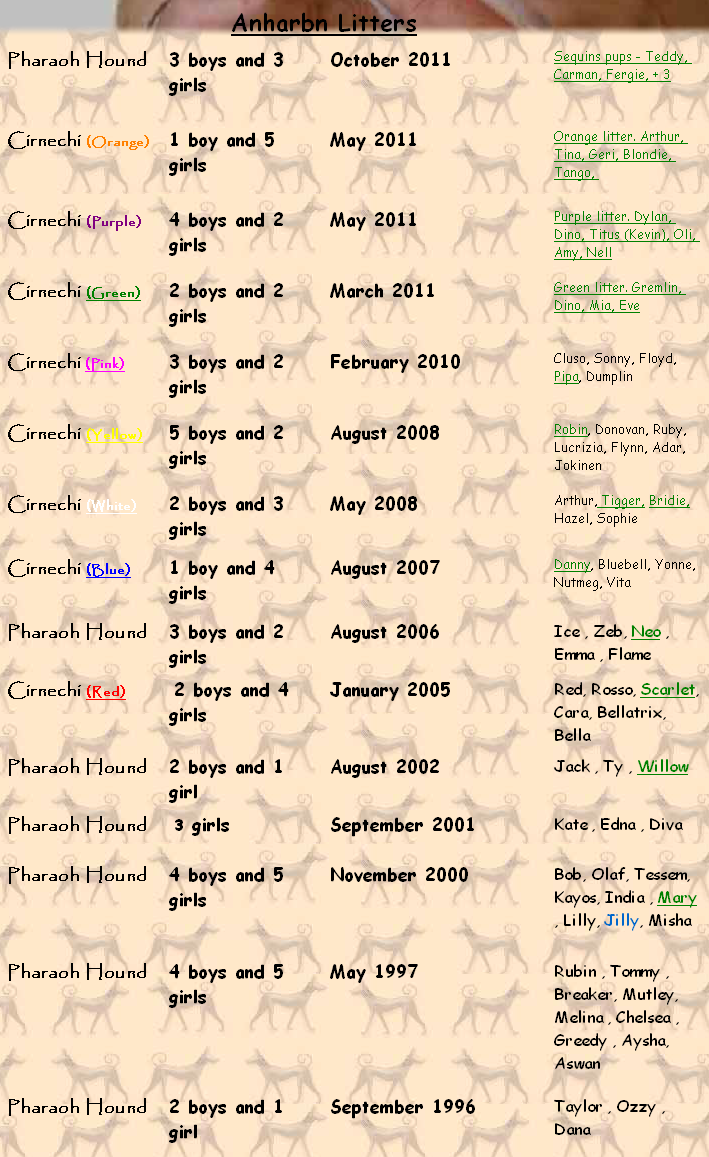 Anharbn Litters
Pharaoh Hound 3 boys and 3 October 2011 Sequins pups - Teddy,
girls Carman, Fergie, + 3
Cirnechi (Orange) 1 boy and 5 May 2011 Orange litter. Arthur,
girls Tina, Geri, Blondie,
Tango,
Cirnechi (Purple) 4 boys and 2 May 2011 Purple litter. Dylan,
girls Dino, Titus (Kevin), Oli,
Amy, Nell
Cirnechi (Green) 2 boys and 2 March 2011 Green litter. Gremlin,
girls Dino, Mia, Eve
Cirnechi (Pink) 3 boys and 2 February 2010 Cluso, Sonny, Floyd,
girls Pipa, Dumplin
Cirnechi (Yellow) 5 boys and 2 August 2008 Robin, Donovan, Ruby,
girls Lucrizia, Flynn, Adar,
Jokinen
Cirnechi (White) 2 boys and 3 May 2008 Arthur, Tigger, Bridie,
girls Hazel, Sophie
Cirnechi (Blue) 1 boy and 4 August 2007 Danny, Bluebell, Yonne,
girls Nutmeg, Vita
Pharaoh Hound 3 boys and 2 August 2006 Ice , Zeb, Neo ,
girls Emma , Flame
Cirnechi (Red) 2 boys and 4 January 2005 Red, Rosso, Scarlet,
girls Cara, Bellatrix,
Bella
Pharaoh Hound 2 boys and 1 August 2002 Jack , Ty , Willow
girl
Pharaoh Hound 3 girls September 2001 Kate , Edna , Diva
Pharaoh Hound 4 boys and 5 November 2000 Bob, Olaf, Tessem,
girls Kayos, India , Mary
, Lilly, Jilly, Misha
Pharaoh Hound 4 boys and 5 May 1997 Rubin , Tommy ,
girls Breaker, Mutley,
Melina , Chelsea ,
Greedy , Aysha,
Aswan
Pharaoh Hound 2 boys and 1 September 1996 Taylor , Ozzy ,
girl Dana